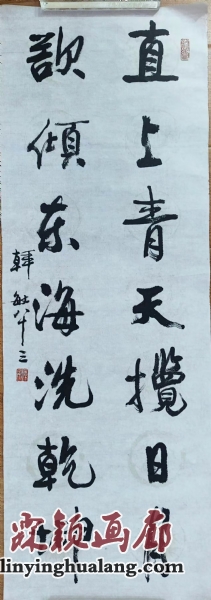 直上青天攬日月
欲傾東海洗乾坤
韓敏八十三
疏颖画廊
linyinghualang.com